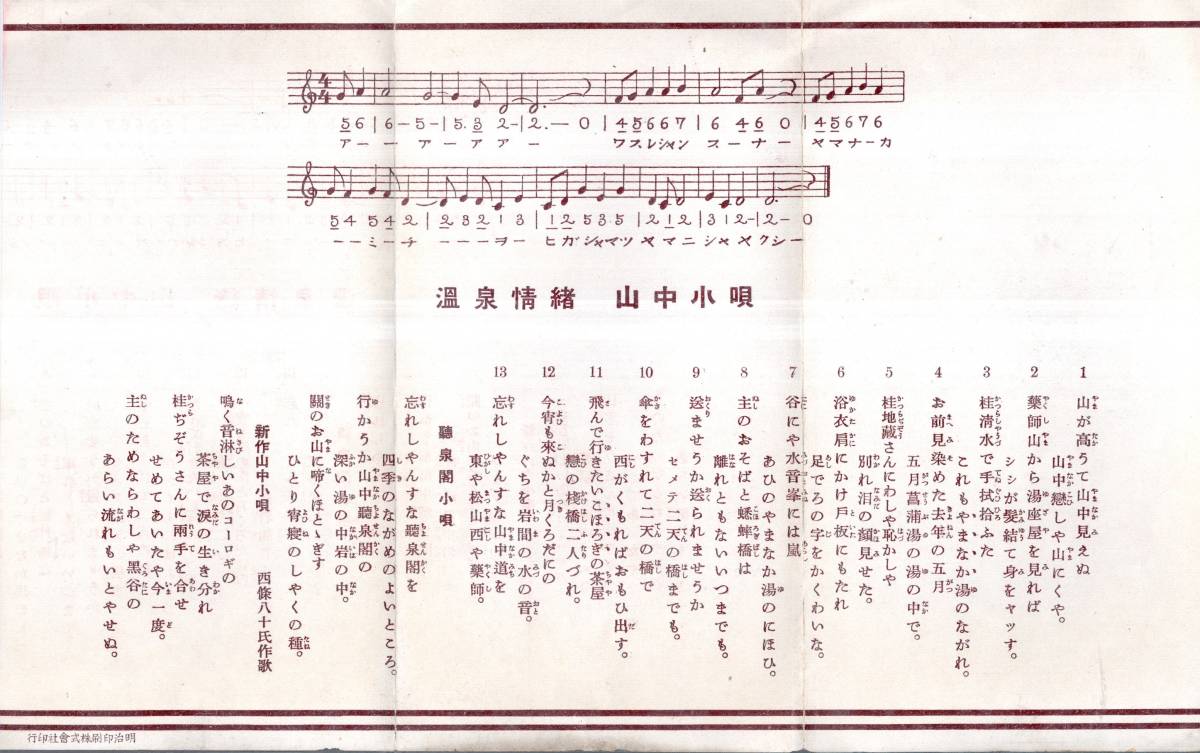 5 6 | 6 - 5 - | 5. 3 2 - | 2. - 0 | 4 5 6 6 7 | 6 4 6 0 | 4 5 6 7 6
アー アーアアー ワスレシャンスーナー ヤマナーカ
5 4 5 4 2 | 2 3 2 1 3 | 1 2 5 3 5 | 2 1 2 | 3 1 2 - | 2 - 0
ーーミーチ ーーーヨー ヒガシャマツヤマニシャヤクシー
溫泉情緖 山中小唄
1 山が高うて山中見えぬ
山中戀しや山にくや。
2 藥師山から湯座屋を見れば
シシが髮結て身をヤッす。
3 桂淸水で手拭拾ふた
これもやまなか湯のながれ。
4 お前見染めた去年の五月
五月菖蒲湯の湯の中で。
5 桂地藏さんにわしや恥かしや
別れ泪の顏見せた。
6 浴衣肩にかけ戸板にもたれ
足でろの字をかくわいな。
7 谷にや水音峯には嵐
あひのやまなか湯のにほひ。
8 主のおそばと蟋蟀橋は
離れともないいつまでも。
9 送ませうか送られませうか
セメテ二天の橋までも。
10 傘をわすれて二天の橋で
西がくもればおもひ出す。
11 飛んで行きたいこほろぎの茶屋
戀の棧橋二人づれ。
12 今宵も來ぬかと月くろだにの
ぐちを岩間の水の音。
13 忘れしやんすな山中道を
東や松山西や藥師。
聽泉閣小唄
忘れしやんすな聽泉閣を
四季のながめのよいところ。
行かうか山中聽泉閣の
深い湯の中岩の中。
關のお山に啼くほとゝぎす
ひとり宵寢のしやくの種。
新作山中小唄 西條八十氏作歌
鳴く音淋しいあのコーロギの
茶屋で淚の生き分れ
桂ぢぞうさんに兩手を合せ
せめてあいたや今一度。
主のためならわしや黑谷の
あらい流れもいとやせぬ。
明治印刷株式會社印行